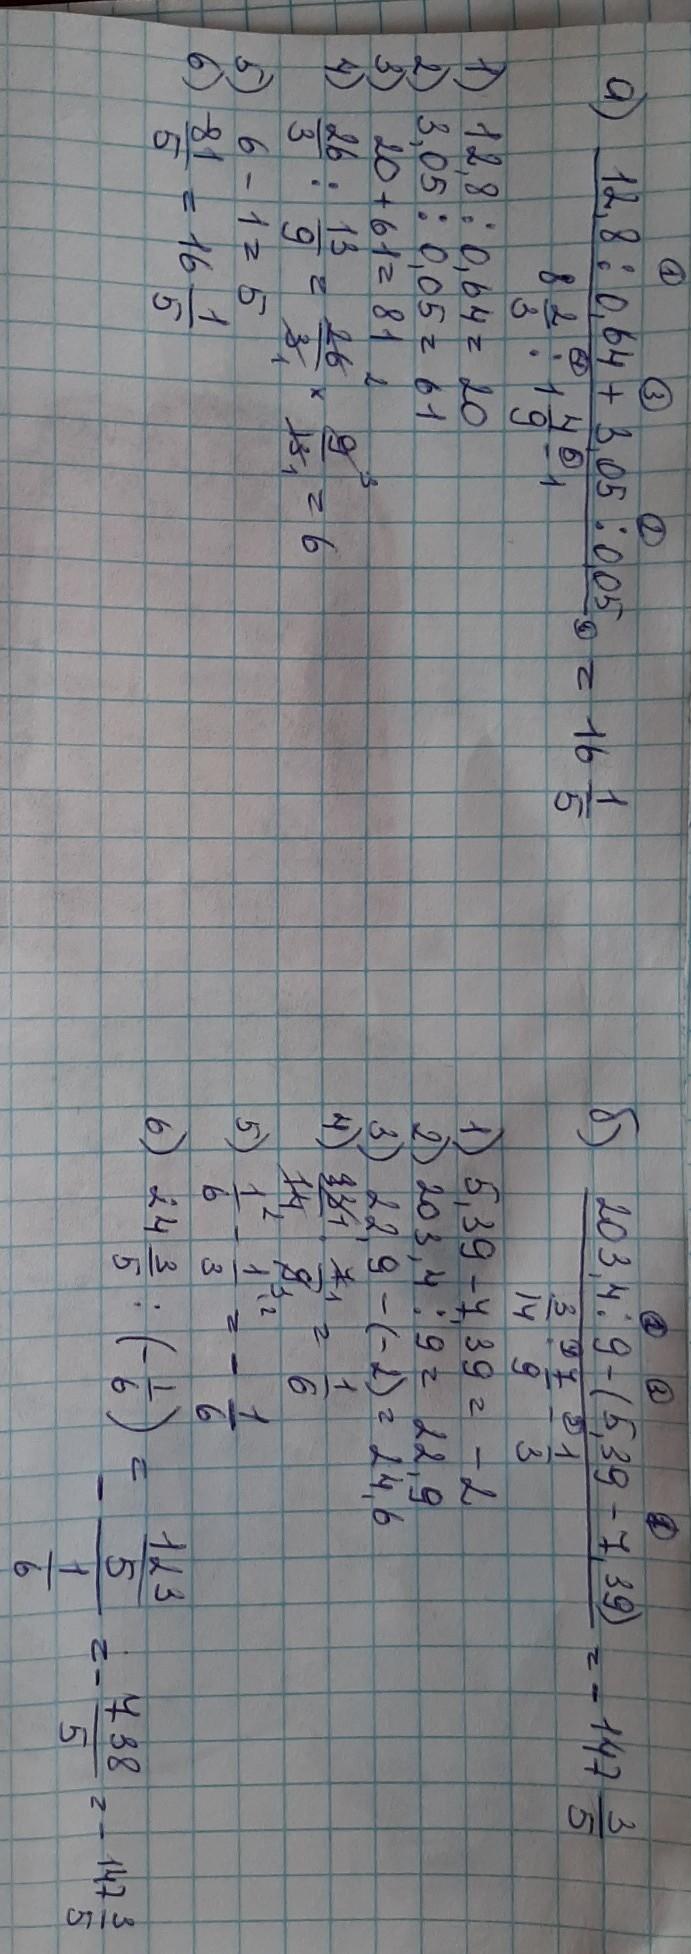 а) 12,8 : 0,64 + 3,05 : 0,05 = 16 1/5
8 2/3 : 1 4/9 - 1
1) 12,8 : 0,64 = 20
2) 3,05 : 0,05 = 61
3) 20 + 61 = 81
4) 26/3 : 13/9 = 26/3 × 9/13 = 6
5) 6 - 1 = 5
6) 81/5 = 16 1/5
б) 203,4 : 9 - (5,39 - 7,39) = - 147 3/5
3/14 : 9/7 - 1/3
1) 5,39 - 7,39 = - 2
2) 203,4 : 9 = 22,9
3) 22,9 - (-2) = 24,6
= 1/6
5) 1/6 - 1/3 = - 1/6
6) 24 3/5 : (- 1/6) = - 123/5 / 1/6 = - 738/5 = - 147 3/5